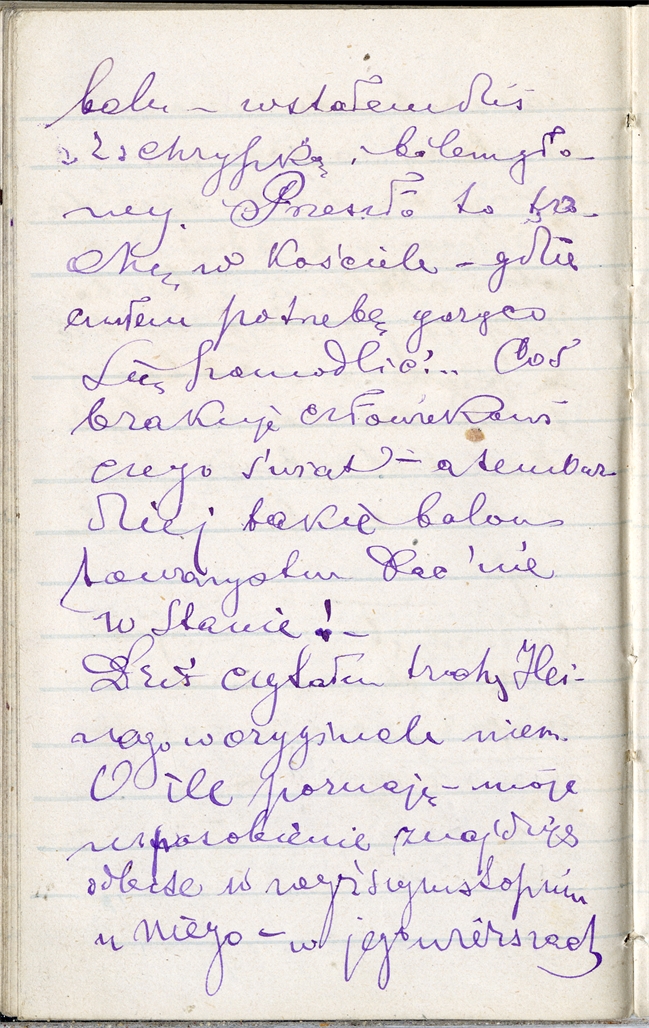 balu – wstałem dziś
z zachrypką i bólem gło-
wy. Przeszło to tro-
chę w Kościele – gdzie
czułem potrzebę gorąco
się pomodlić!.. Coś
brakuje człowiekowi
czego świat – a tembar
dziej takie balowe
towarzystwo dać nie
w stanie! –
Dziś czytałem trochę Hei-
nego w oryginale niem.
O ile poznaję – moje
usposobienie znajduje
odbicie w wyższym stopniu
u niego – w jego wierszach